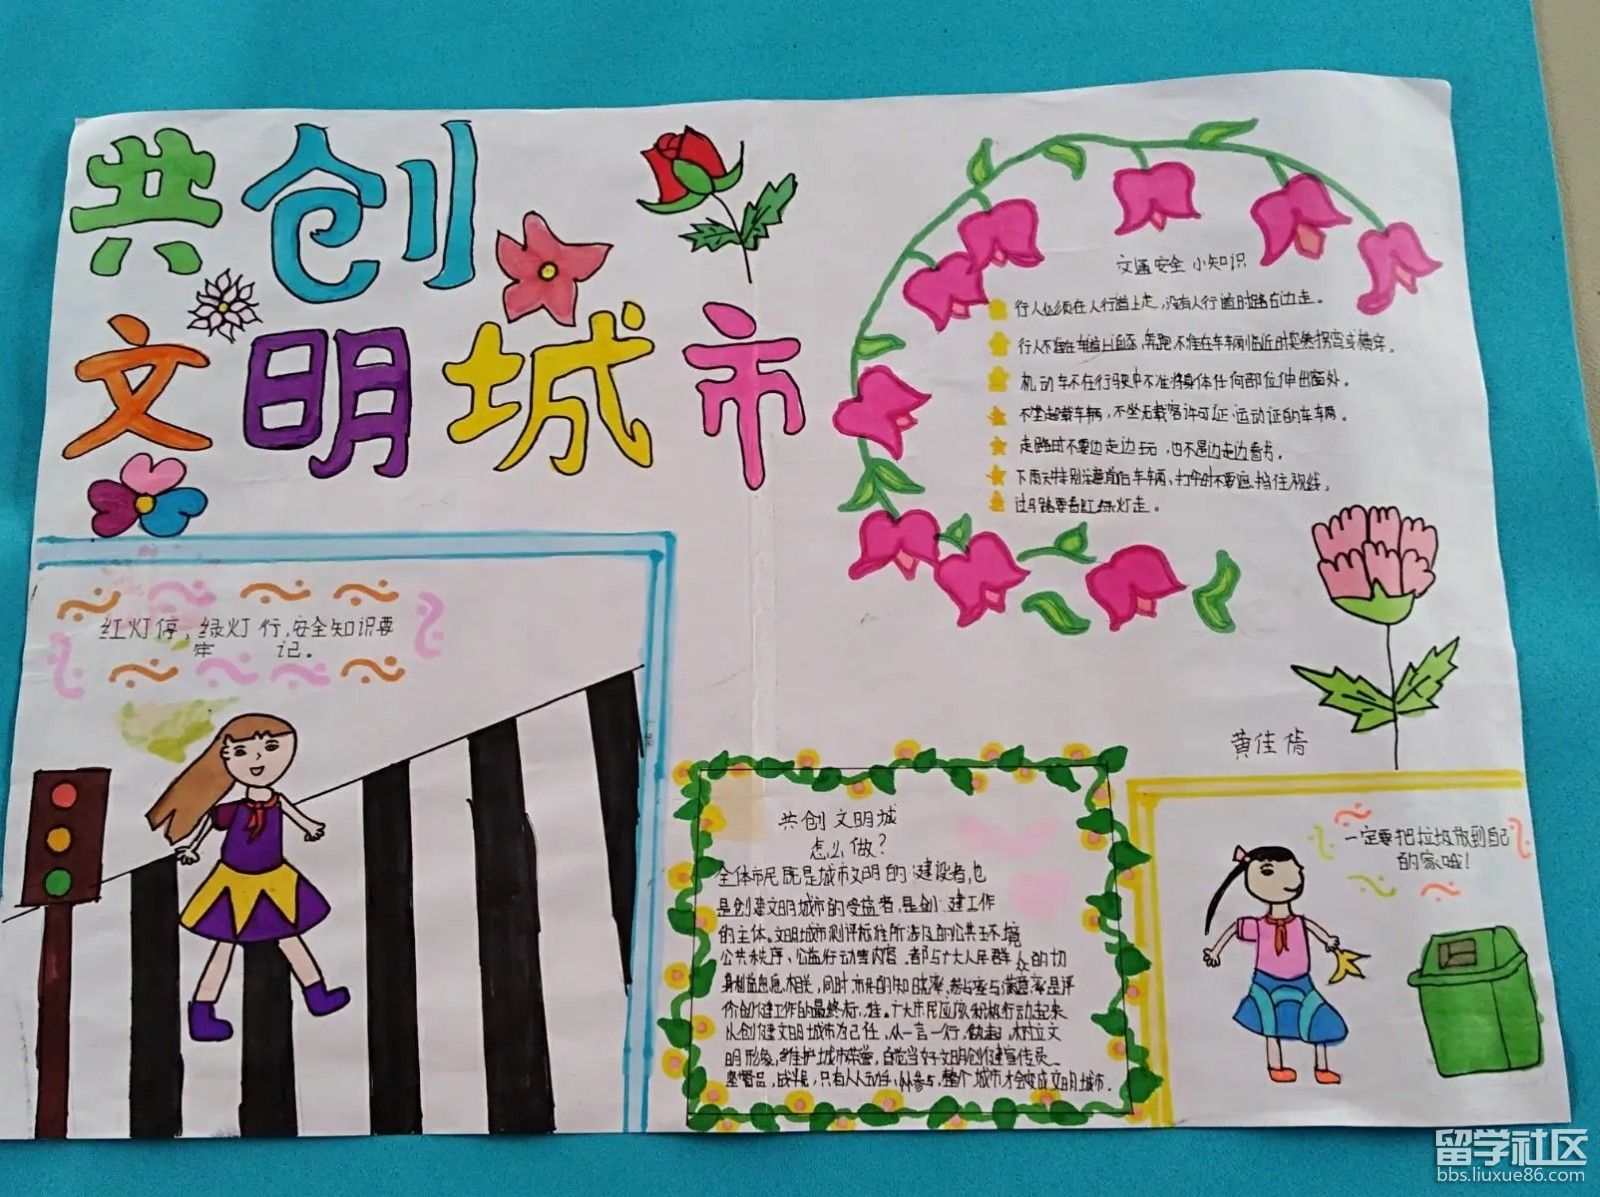 共创
文明城市
交通安全小知识
行人必须在人行道上走,没有人行道时路右边走。
行人不准在车道上追逐、奔跑,不准在车辆临近时突然拐弯或横穿。
机动车不在行驶中不准将身体任何部位伸出窗外。
不坐超载车辆,不坐无载客许可证运动证的车辆。
走路时不要边走边玩,也不是边走边看书。
下雨天特别注意前后车辆,打伞时不要遮挡住视线,
过马路要看红绿灯走。
红灯停,绿灯行,安全知识要
牢记。
黄佳
共创文明城
怎么做?
全体市民既是城市文明的建设者,也
是创建文明城市的受益者,是创建工作
的主体。文明城市测评标准所涉及的公共环境
公共秩序、公益行动等内容,都与广大人民群众的切
身利益息息相关,同时,市民的知晓率、参与率与满意率是评
价创建工作的最终标准。广大市民应积极行动起来
从创建文明城市为己任,从一言一行做起,树立文
明形象,维护城市荣誉,自觉当好文明创建宣传员
监督员,战斗员,只有人人动手,人人参与,整个城市才会变成文明城市.
一定要把垃圾放到自己
的家哦!
留学社区
bbs.liuxue86.com